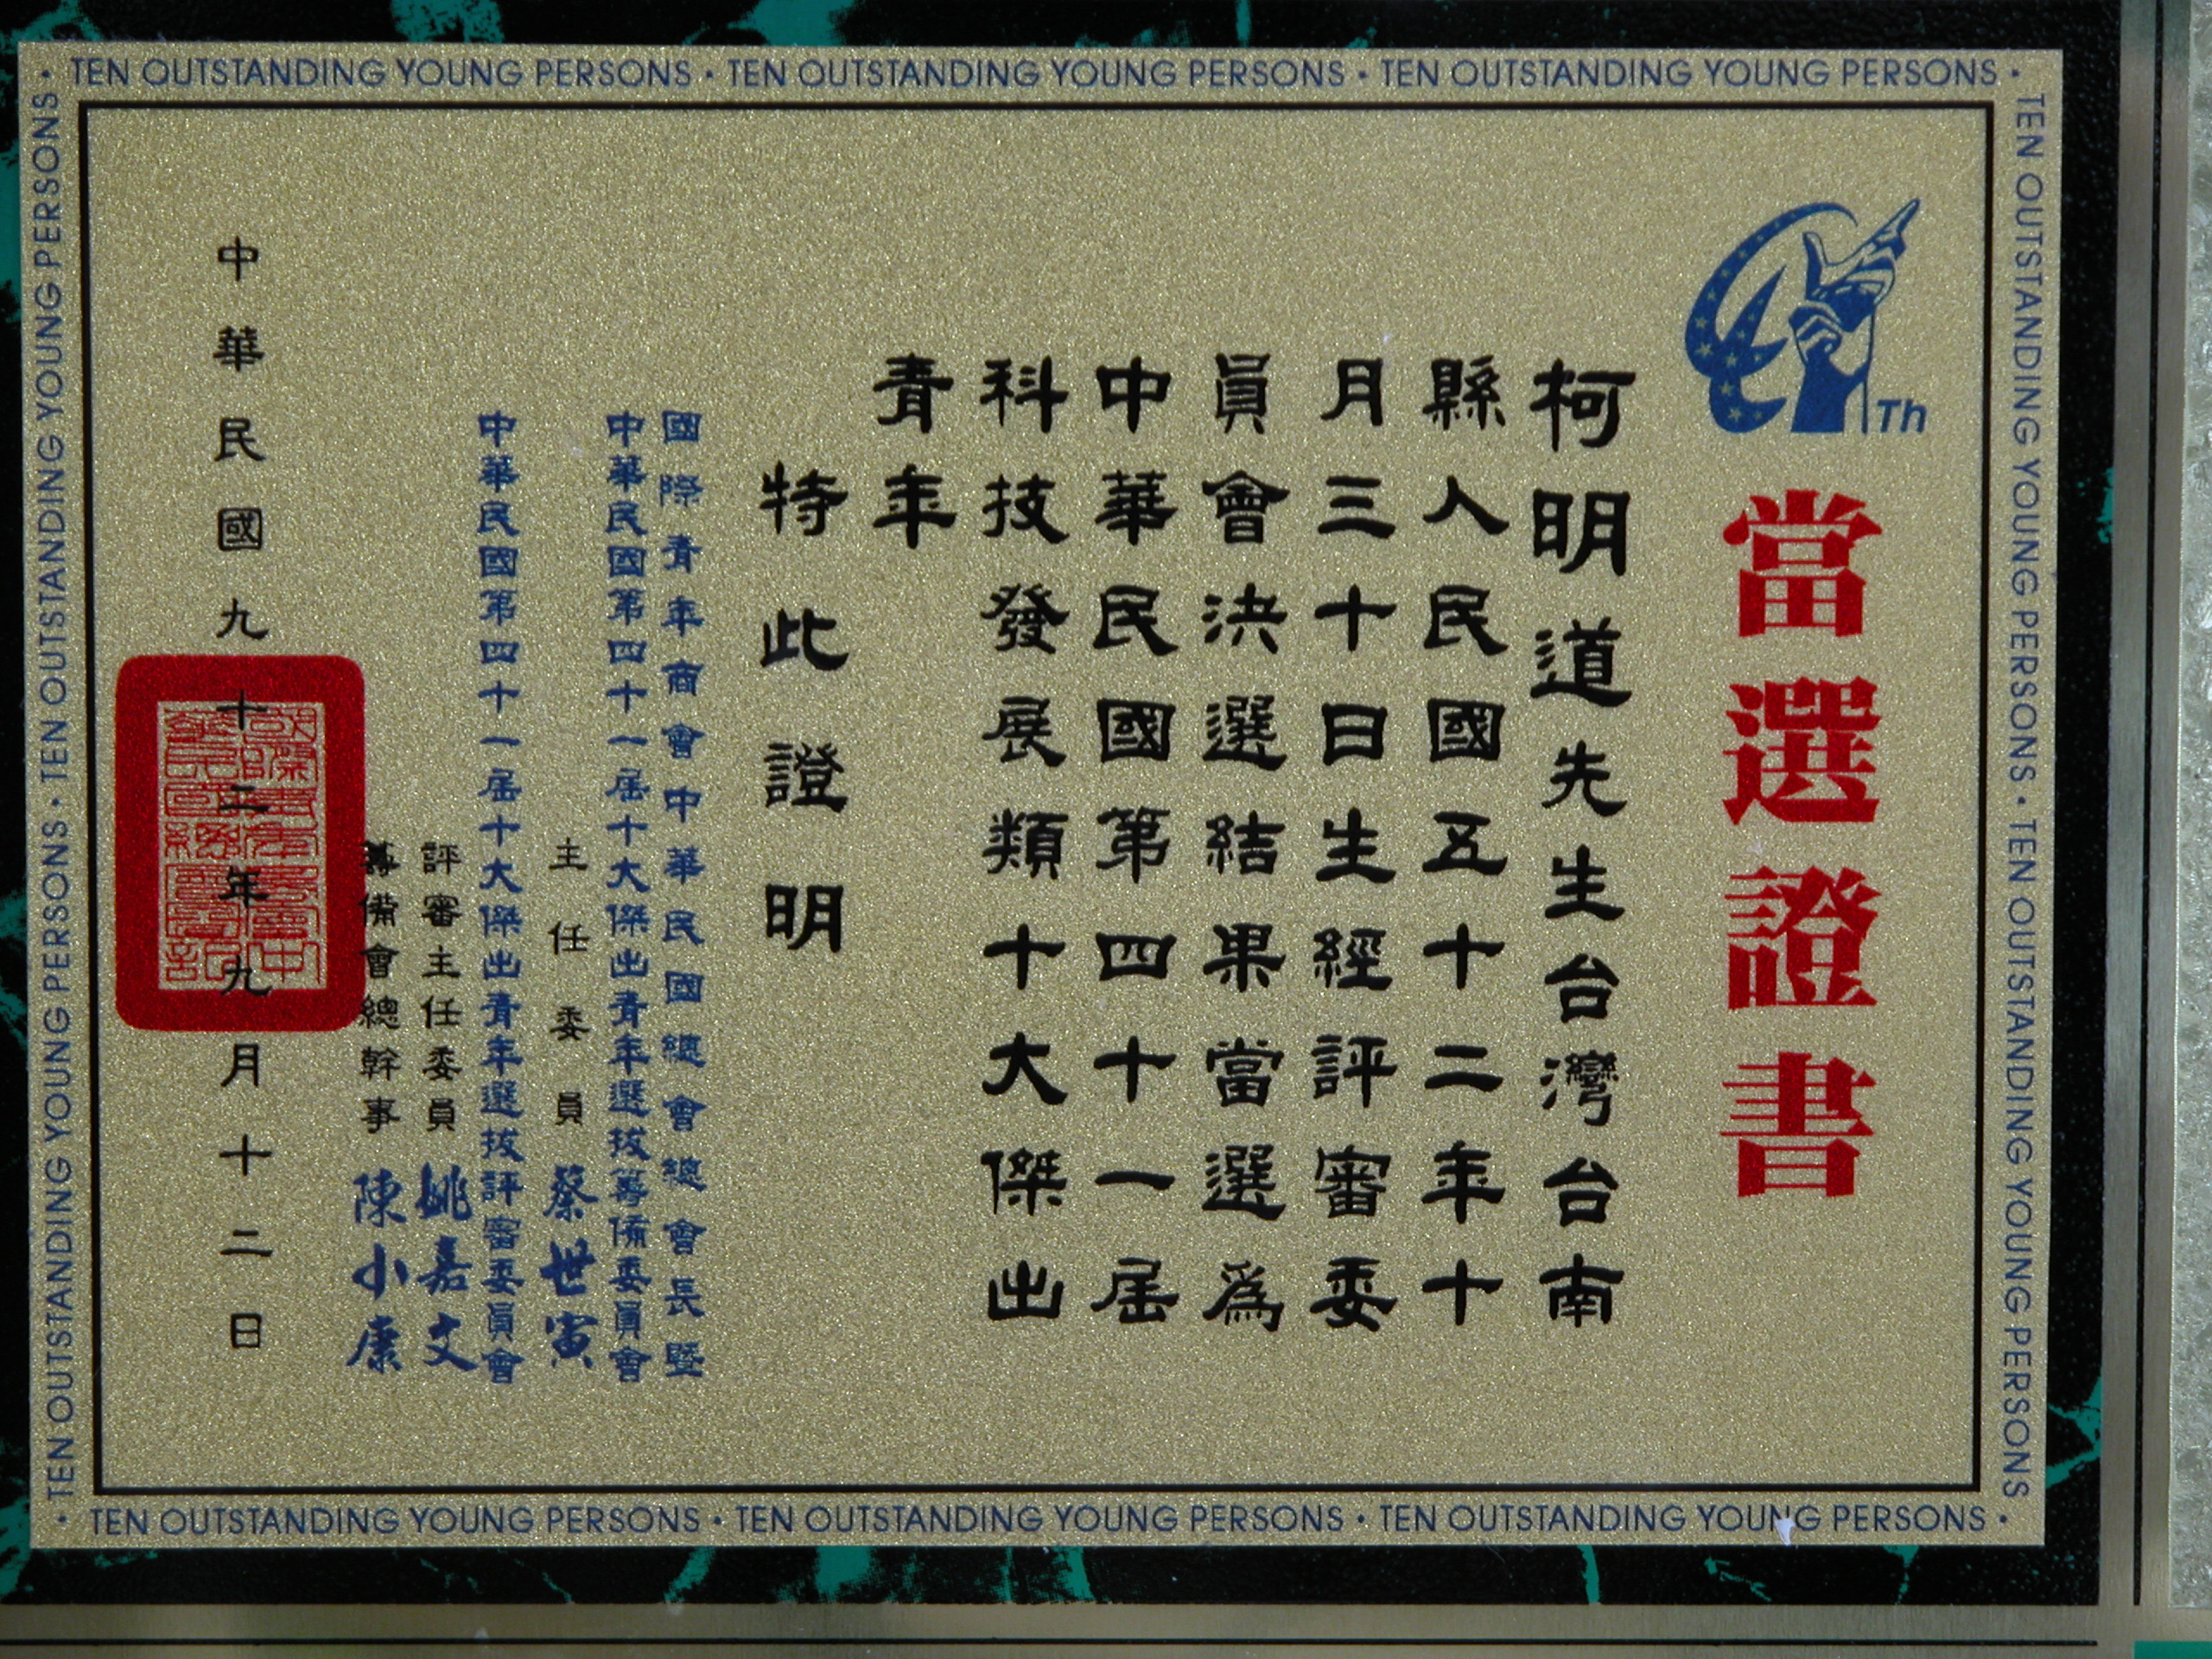 • TEN OUTSTANDING YOUNG PERSONS • TEN OUTSTANDING YOUNG PERSONS • TEN OUTSTANDING YOUNG PERSONS •
TEN OUTSTANDING YOUNG PERSONS • TEN OUTSTANDING YOUNG PERSONS
41Th
當選證書
柯明道先生台灣台南
縣人民國五十二年十
月三十日生經評審委
員會決選結果當選為
中華民國第四十一屆
科技發展類十大傑出
青年
特此證明
國際青年商會中華民國總會總會長暨
中華民國第四十一屆十大傑出青年選拔籌備委員會
主任委員 蔡世寅
中華民國第四十一屆十大傑出青年選拔評審委員會
評審主任委員 姚嘉文
籌備會總幹事 陳小康
中華民國九十二年九月十二日
TEN OUTSTANDING YOUNG PERSONS • TEN OUTSTANDING YOUNG PERSONS
• TEN OUTSTANDING YOUNG PERSONS • TEN OUTSTANDING YOUNG PERSONS • TEN OUTSTANDING YOUNG PERSONS •